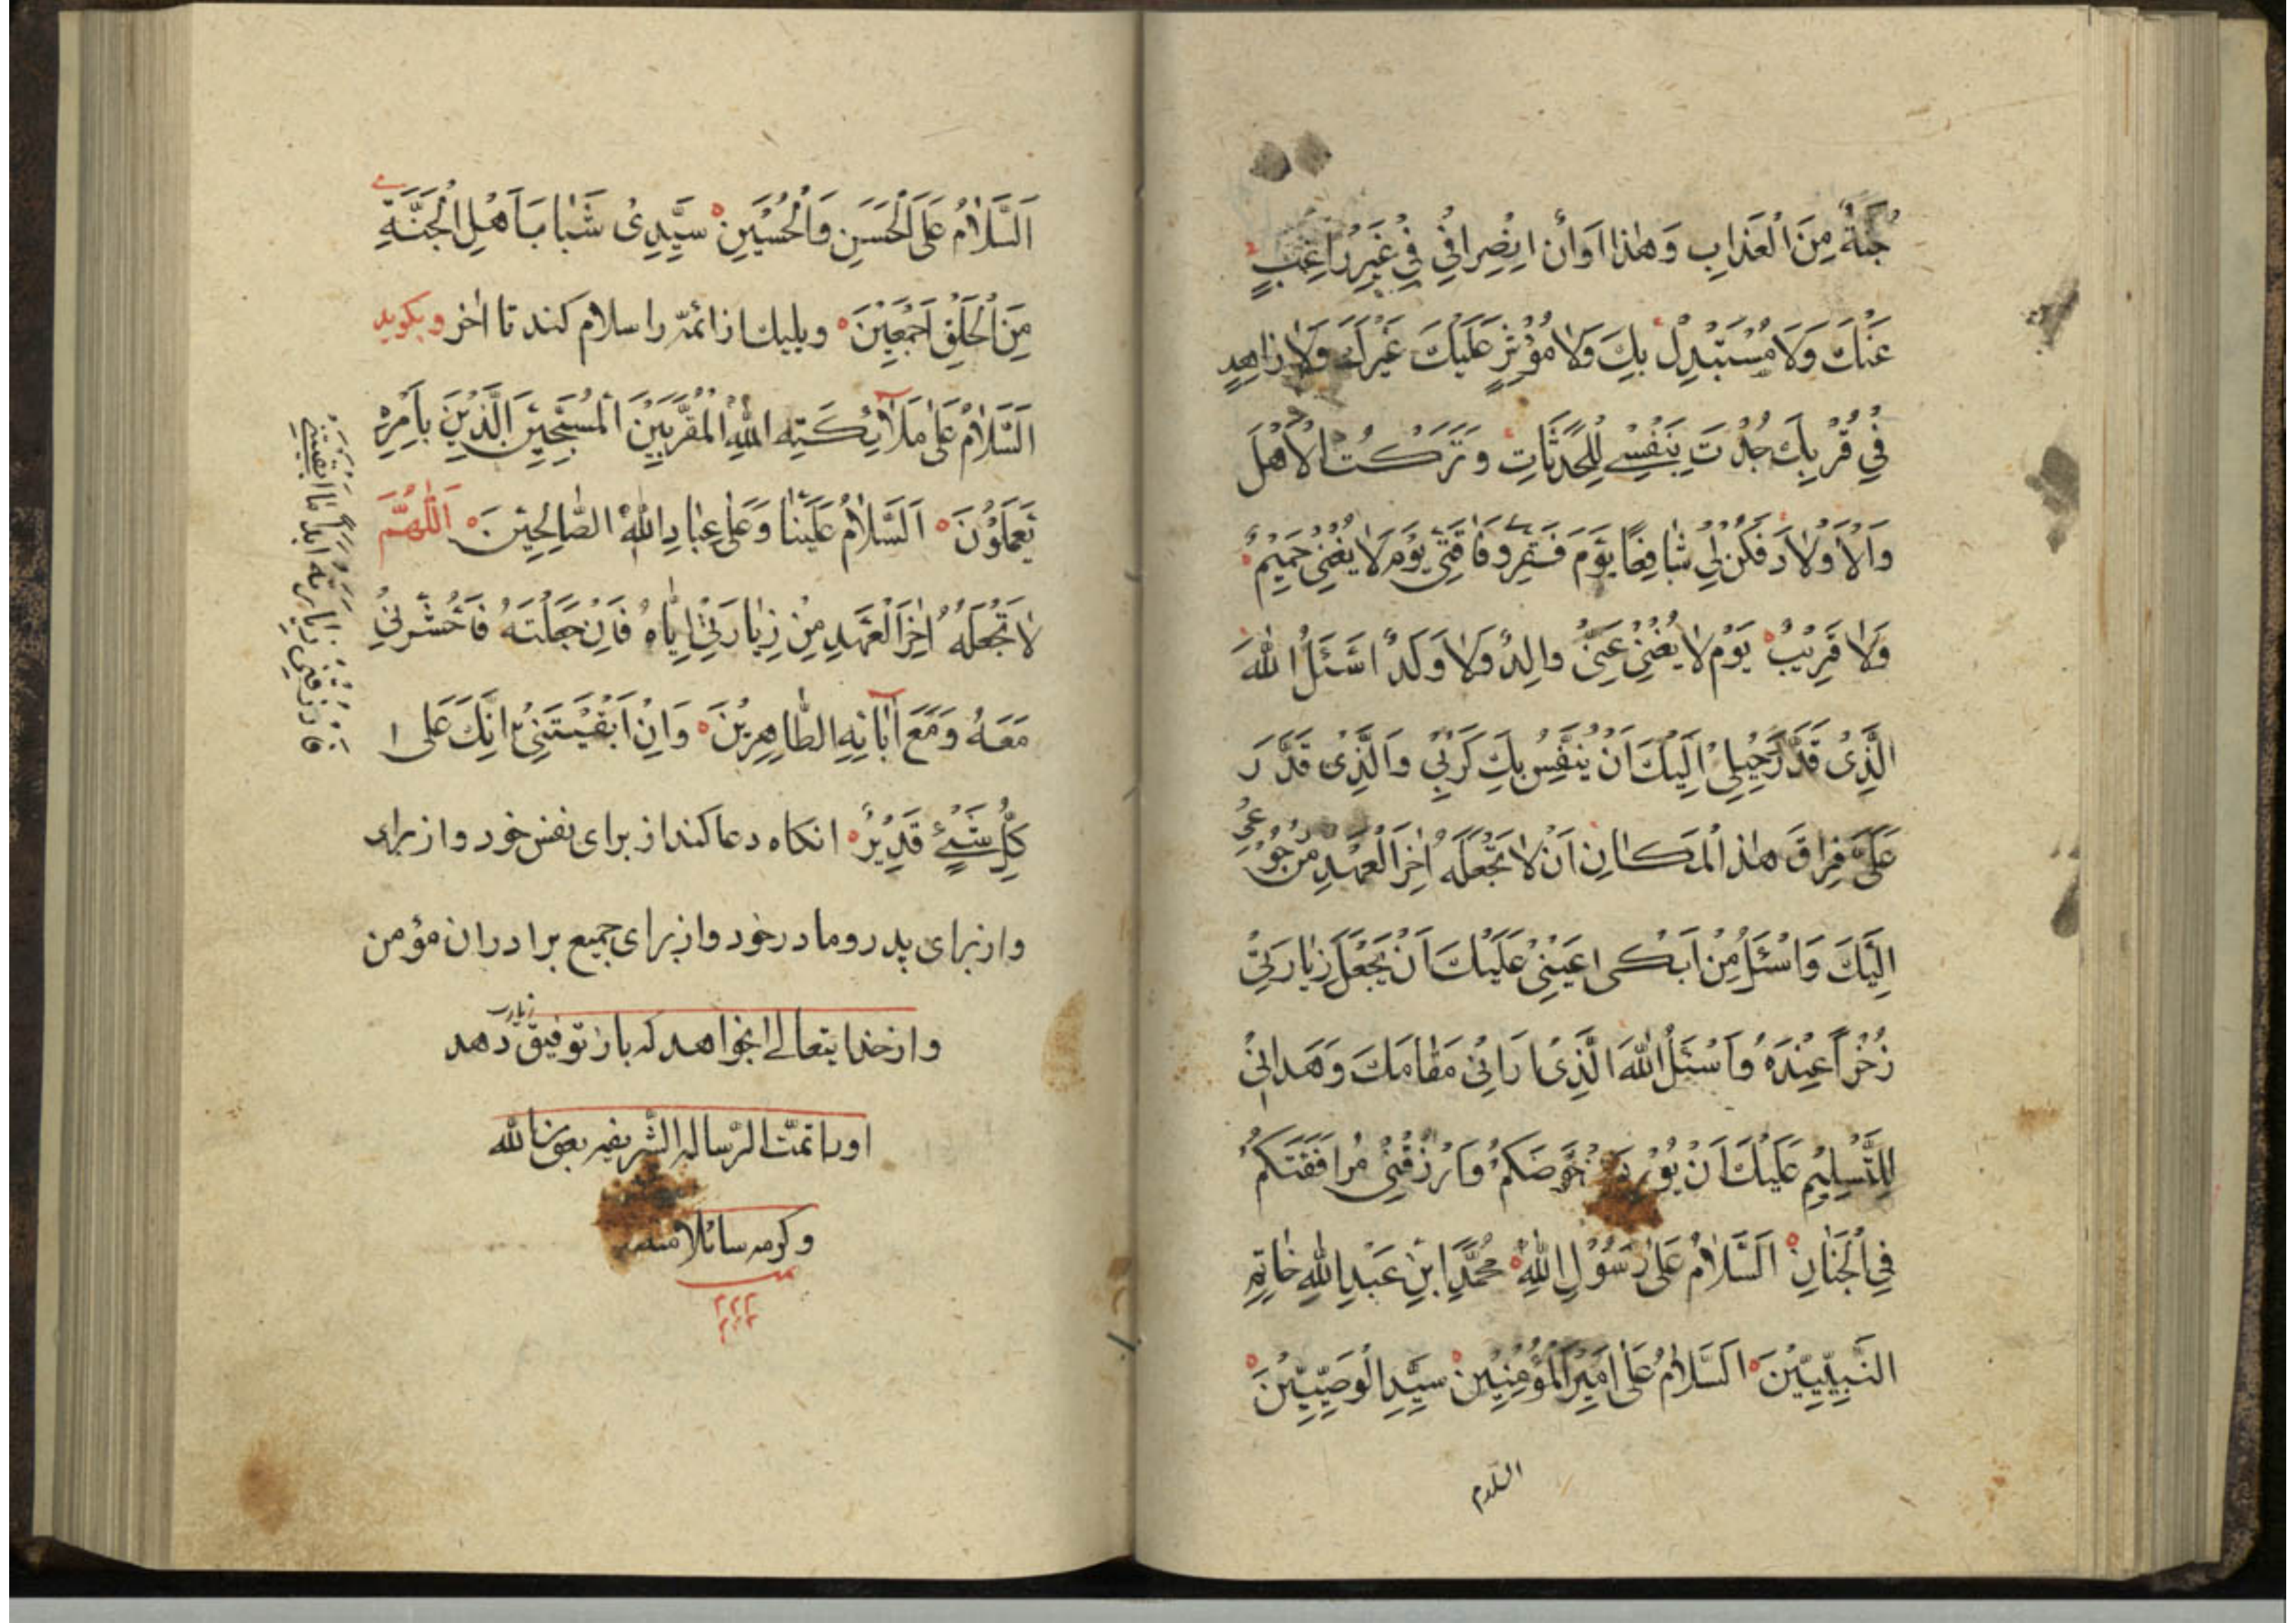 جُنَّةً مِنَ الْعَذابِ وَهٰذا اَوَأن اِنْصِرافِيْ فِيْ غَيْرِ راغِبٍ
عَنْكَ وَلَا مُسْتَبْدِلْ بِكَ وَلَا مُؤْثِرٍ عَلَيْكَ غَيْرَكَ وَلَا زاهِدٍ
فِي قُرْبِكَ جُدْتَ بِنَفْسِي لِلْحَدَثَاتِ وَتَرَكْتُ الْاَهْلَ
وَالْاَوْلادَ فَكُنْ لِيْ شٰافِعًا يَوْمَ فَقْرِي وَفَاقَتِيْ يَوْمَ لَا يُغْنِيْ حَمِيْمٌ
وَلَا قَرِيْبٌ يَوْمَ لَا يُغْنِيْ عَنِّيْ والِدٌ وَلَا وَلَدٌ اَسْئَلُ اللهَ
الَّذِىْ قَدَّرَ رَحِيْلِيْ اِلَيْكَ اَنْ يُنَفِّسَ بِكَ كَرْبِيْ وَالَّذِىْ قَدَّرَ
عَلَيَّ فِراقَ هٰذا الْمَكانِ اَنْ لَا تَجْعَلَهُ اٰخِرَ الْعَهْدِ مِنْ رُجُوْعِيْ
اِلَيْكَ وَاَسْئَلُ مِنْ اَبْكىٰ عَيْنِيْ عَلَيْكَ اَنْ يَجْعَلَ زِيٰارَتِيْ
ذُخْراً عِنْدَهُ وَاَسْئَلُ اللهَ الَّذِىْ اَرَانِيْ مَقٰامَكَ وَهَدانِيْ
لِلتَّسْلِيْمِ عَلَيْكَ اَنْ يُوْرِدَنِيْ حَوْضَكُمْ وَاَرْزُقْنِيْ مُرافَقَتَكُمْ
فِي الْجَنٰانِ اَلسَّلامُ عَلىٰ رَسُوْلِ اللهِ مُحَمَّدٍ ابْنِ عَبْدِ اللهِ خٰاتِمِ
النَّبِيّيْنَ اَلسَّلامُ عَلىٰ اَمِيْرِ الْمُؤْمِنِيْنَ سَيِّدِ الْوَصِيّيْنَ
السّلام
اَلسَّلامُ عَلَى الْحَسَنِ وَالْحُسَيْنِ سَيِّدِىْ شَبٰابِ اَهْلِ الْجَنَّةِ
مِنَ الْخَلْقِ اَجْمَعِيْنَ ويليك از ائمّه را سلام كند تا اٰخر وبكويد
اَلسَّلامُ عَلىٰ مَلآئِكَتِهِ اللهِ الْمُقَرَّبِيْنَ الْمُسَبِّحِيْنَ الَّذِيْنَ بِاَمْرِهٖ
يَعْمَلُوْنَ اَلسَّلامُ عَلَيْنٰا وَعَلىٰ عِبٰادِ اللهِ الصّٰالِحِيْنَ اَللّٰهُمَّ
لا تَجْعَلْهُ اٰخِرَ الْعَهْدِ مِنْ زِيٰارَتِيْ اِيّٰاهُ فَاِنْ جَعَلْتَهُ فَاحْشُرْنِيْ
مَعَهُ وَمَعَ اٰبٰائِهِ الطّٰاهِرِيْنَ وَاِنْ اَبْقَيْتَنِيْ اِنَّكَ عَلى ا
فَارْزُقْنِيْ زِيٰارَتَهُ اَبَداً مٰا اَبْقَيْتَنِيْ
كُلِّ شَيْءٍ قَدِيْرٌ انكاه دعا كند از براى نفس خود و از براى
واز براى پدر و مادر خود و از براى جميع برادران مؤمن
و از خدا يتعالے بخواهد كه باز توفيق زيارت دهد
اورا تمّت الرّسالہ الشّريفہ بعون الله
وكرمه سائلا منه
تمت